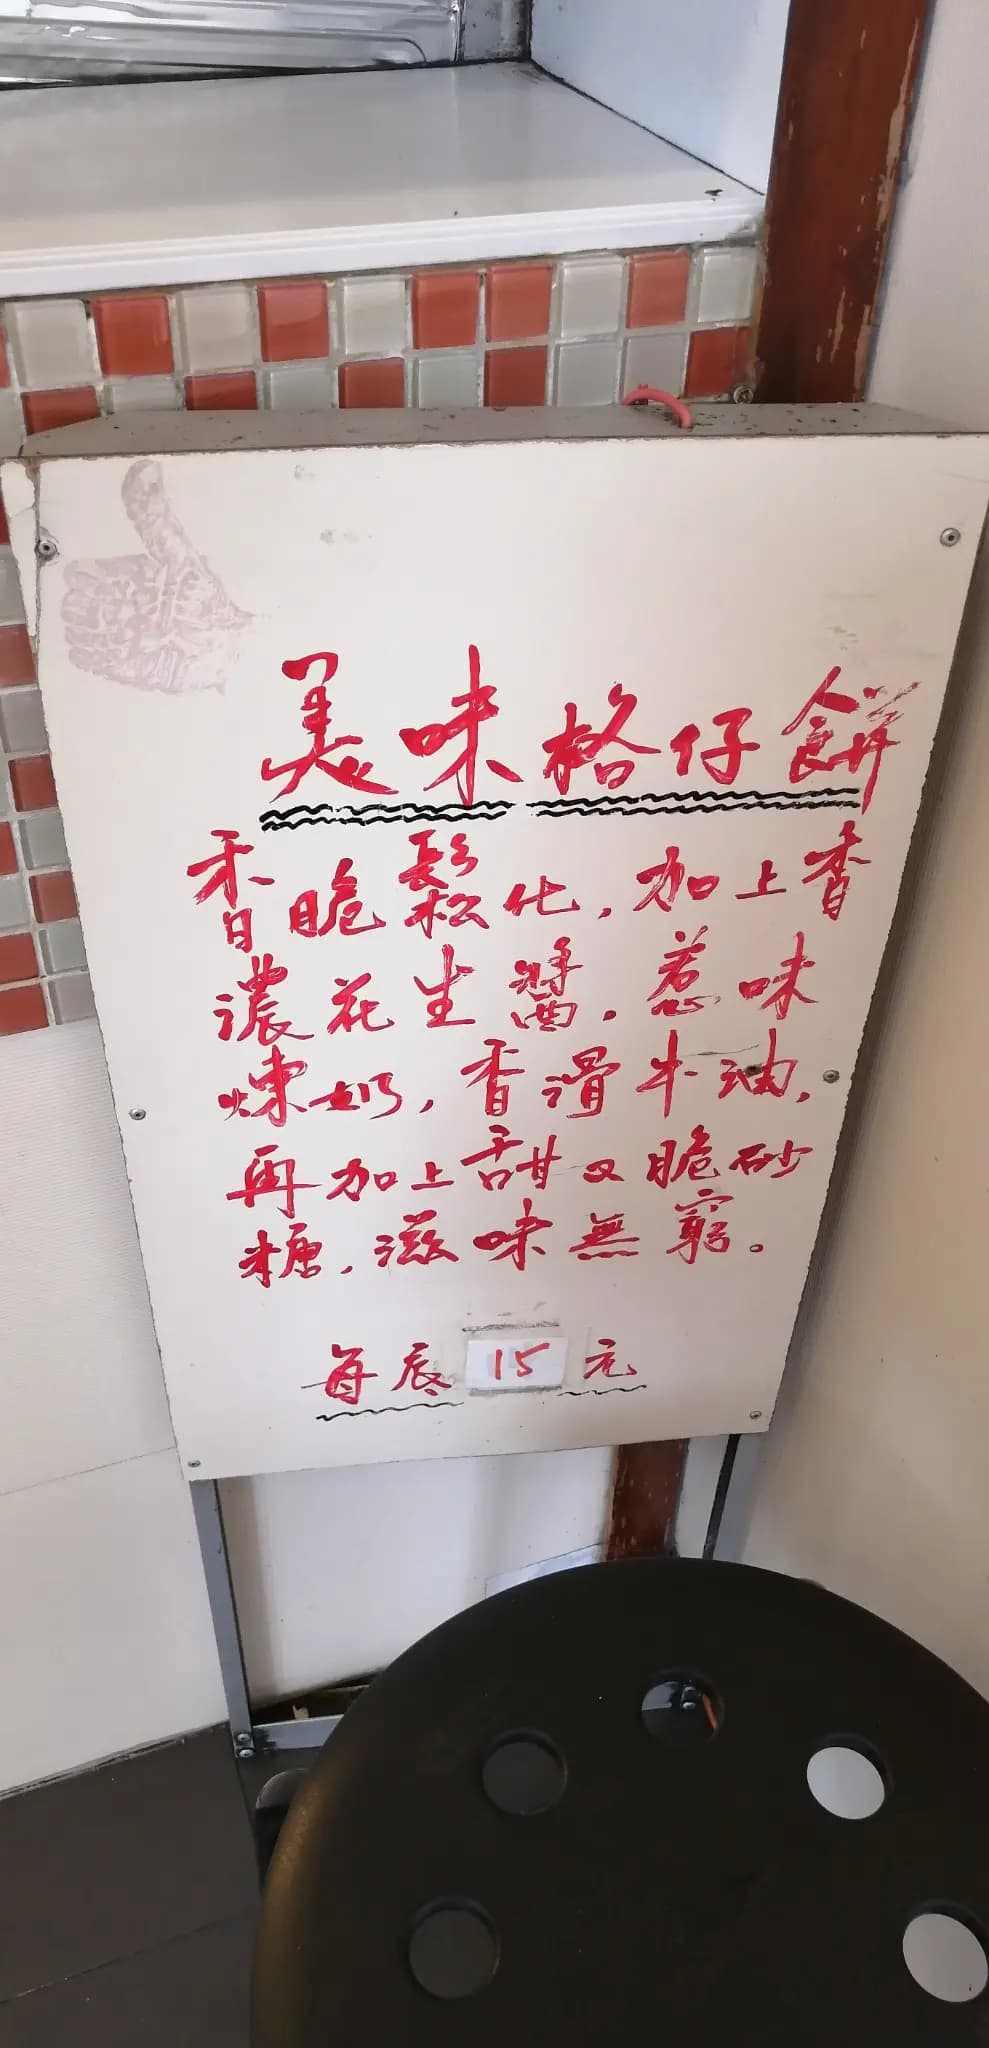 美味格仔餅
香脆鬆化，加上香
濃花生醬．惹味
煉奶，香滑牛油，
再加上甜又脆砂
糖，滋味無窮。
每底 15 元